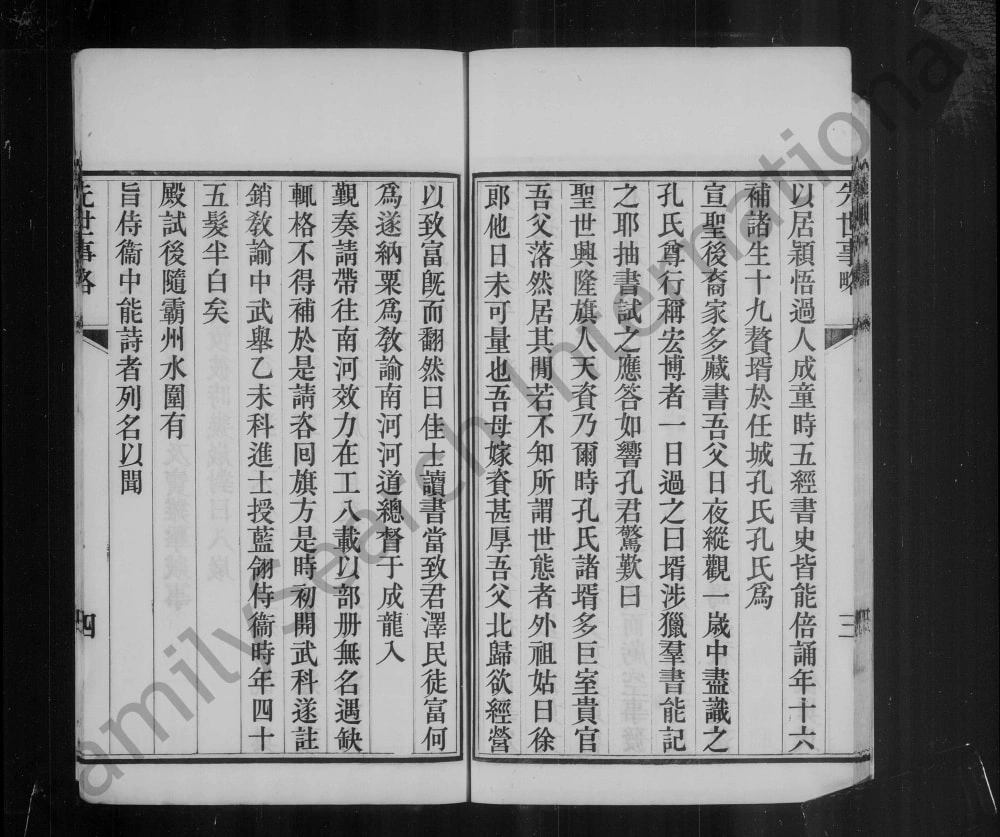 先世事略
三
以居穎悟過人成童時五經書史皆能倍誦年十六
補諸生十九贅壻於任城孔氏孔氏爲
宣聖後裔家多藏書吾父日夜縱觀一歲中盡識之
孔氏尊行稱宏博者一日過之曰壻涉獵羣書能記
之耶抽書試之應答如響孔君驚歎曰
聖世興隆旗人天資乃爾時孔氏諸壻多巨室貴官
吾父落然居其閒若不知所謂世態者外祖姑曰徐
郎他日未可量也吾母嫁資甚厚吾父北歸欲經營
以致富旣而翻然曰佳士讀書當致君澤民徒富何
爲遂納粟爲敎諭南河河道總督于成龍入
覲奏請帶往南河效力在工八載以部册無名遇缺
輒格不得補於是請咨囘旗方是時初開武科遂註
銷敎諭中武舉乙未科進士授藍翎侍衞時年四十
五髮半白矣
殿試後隨霸州水圍有
旨侍衞中能詩者列名以聞
先世事略
四
FamilySearch International